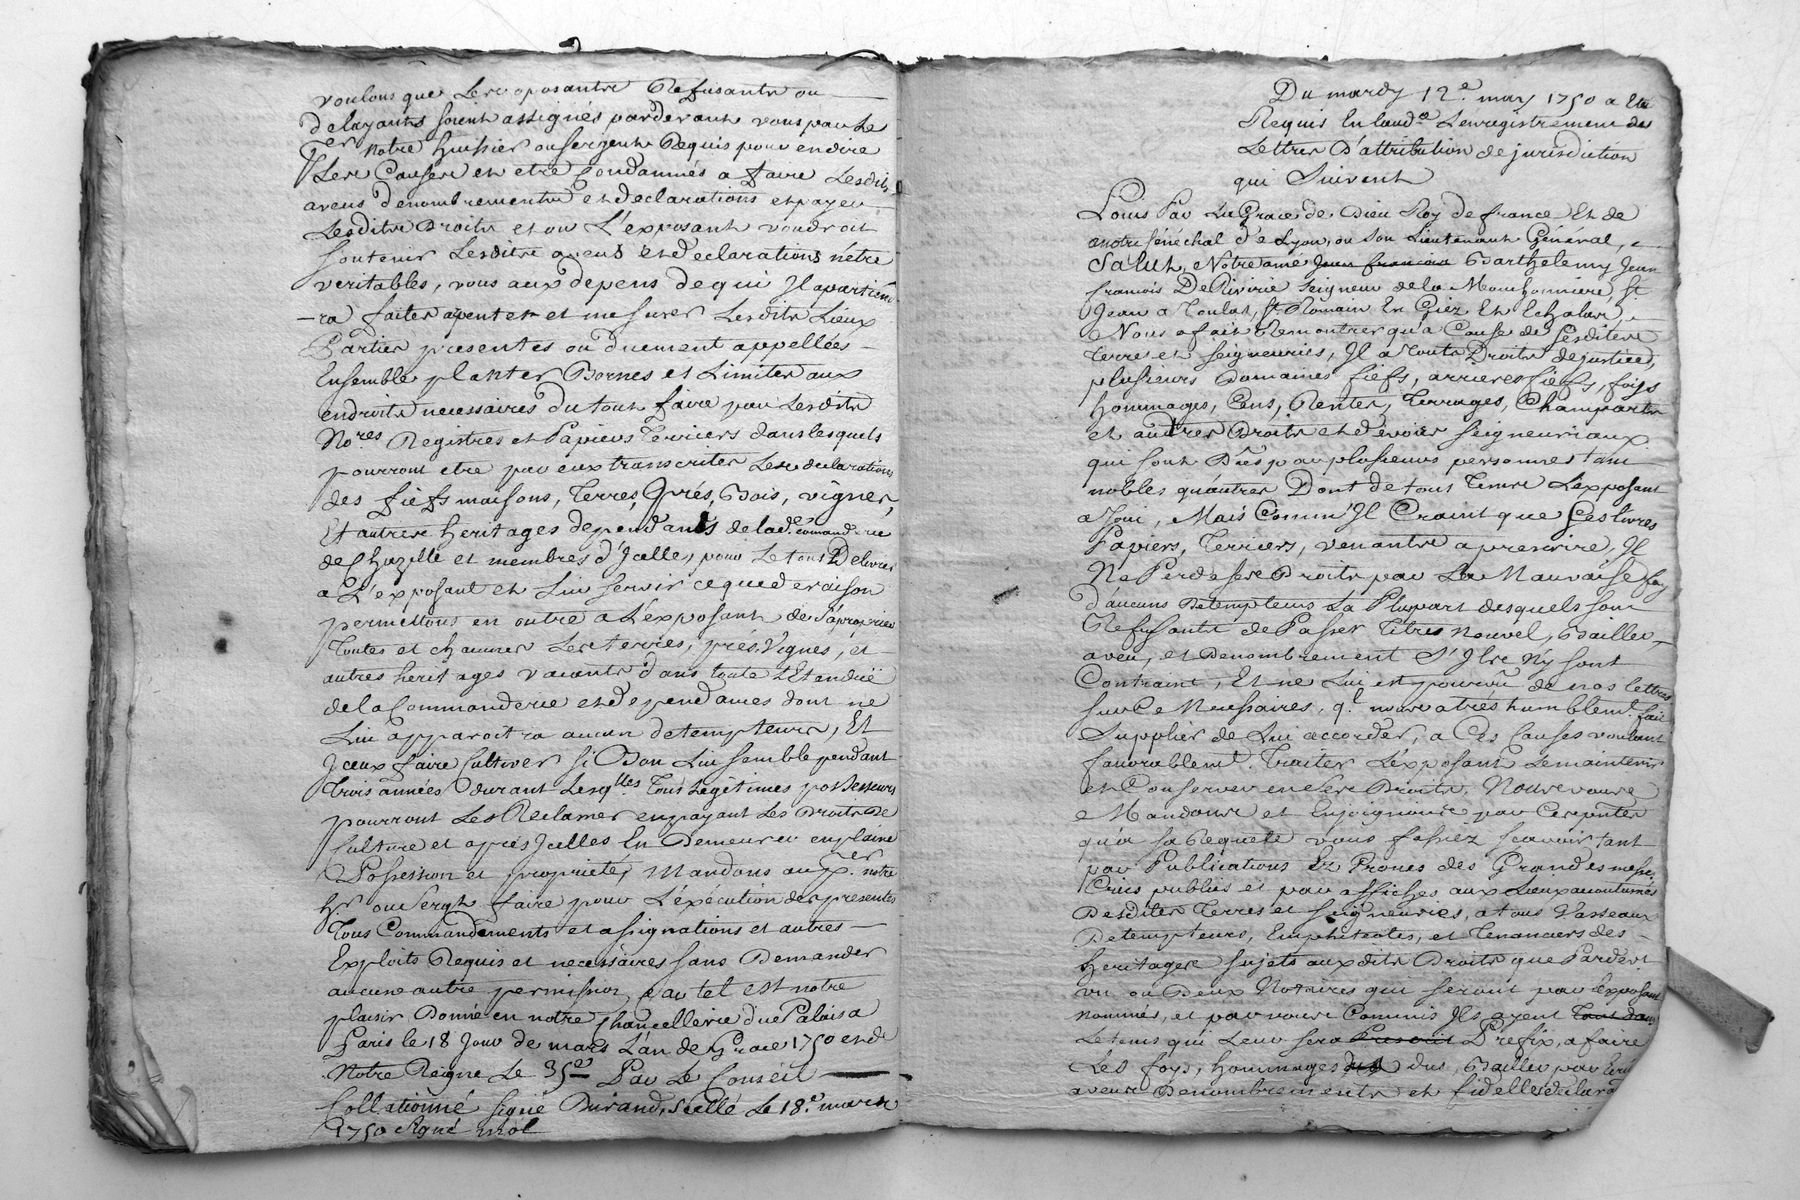 voulons que Les oposants Refusants ou
delayants soient assignés pardevant vous par Le
P.er notre huissier ou sergent Requis pour en dire
Les Causes et etre Condamnés a faire Lesdits
aveus denombrements et declarations et payer
Lesdits Droits et ou L'exposant voudroit
soutenir Lesdits aveus et declarations nétre
veritables, vous aux depens de qui Il apartien
-ra faites arpenter et mesurer Lesdits Lieux
Parties presentes ou duement appellées
Ensemble planter Bornes et Limites aux
endroits necessaires du tout faire par Lesdits
No.res Registres et Papiers Terriers dans lesquels
pourront etre par eux transcrites Les declarations
des fiefs maisons, Terres, Prés, Bois, vignes,
Et autres heritages dependants de lade. comand.rie
de Chazelle et membres d'Jcelles, pour Le tout Delivrer
a L'exposant et Lui servir ce que de raison
permettons en outre a L'exposant de S'aproprier
Toutes et chacunes Les terres, prés, Vignes, et
autres herit ages vacants dans toute L'Etenduë
de la Commanderie et dependances dont ne
Lui apparoit ra aucun detempteurs, Et
Jceux faire Cultiver si Bon Lui semble pendant
Trois années durant Lesq.lles Tous Légitimes possesseurs
pourront Les Reclamer en payant Les Droits De
Culture et aprés Jcelles En Demeurer en plaine
Possession et proprieté, Mandons au P.er notre
h.r ou Sergt faire pour L'éxécution des presentes
Tous Commandements et assignations et autres
Exploits Requis et necéssaires sans Demander
aucune autre permission, Car tel est notre
plaisir Donné en notre Chancellerie du Palais a
Paris le 18 Jour de mars L'an de Grace 1750 et de
Notre Regne Le 35e Par Le Conseil
Collationné signé Durand, scellé Le 18.e mars
1750 signé
Du mardy 12.e may 1750 a Eté
Requis En laude. Lenregistrement des
Lettres D'attribution de jurisdiction
qui Suivent
Louis Par La Grace de Dieu Roy de france Et de
a notre sénéchal de Lyon, ou son Lieutenant Général,
Salut, Notre amé Jean francois Barthelemy Jean
francois De Riverie seigneur de la Mouchonniere, St.
Jean a Toulas, St. Romain En Giez Et Echalas,
Nous a fait Remontrer qu'a Cause de Sesdites
Terres et seigneuries, Jl a Touts Droits de justice,
plusieurs Domaines fiefs, arrieres fiefs, foys
hommages, Cens, Rentes, Terrages, Champarts
et autres Droits et devoirs seigneuriaux
qui sont Dûs par plusieurs personnes tant
nobles qu'autres Dont de tout Tems L'exposant
a Joui, Mais Comm'Jl Craint que Ces livres
Papiers, Terriers, venants a prescrire, Jl
Ne Perde ses Droits par La Mauvaise foy
d'aucuns Detempteurs La Plupart desquels sont
Refusants de Passer Titres nouvel, Bailler
aveu, et Denombrement S'Jls N'y sont
Contraint, Et ne Lui est pourvû de nos lettres
sur Ce Necessaires, q.l nous a trés humblemt. fait
Supplier de Lui accorder, a Ces Causes voulant
favorablemt. Traiter L'exposant Le maintenir
et Conserver en Ses Droits, Nous vous
Mandons et Enjoignons par Ces presentes
qu'a sa Requete vous fassiez scavoir tant
par Publications Ez Prones des Grandes messes,
Cries publics et par affiches aux Lieux acoutumés
Desdites Terres et seigneuries, a tous Vasseaux
Detempteurs, Emphiteotes, et Tenanciers des
heritages sujets auxdits Droits que Pardevt.
un ou Deux Notaires qui seront par L'exposant
nommés, et par vous Commis Jls ayent Tout dans
Le tems qui Leur sera Prescrit Prefix, a faire
Les foys, hommages dus, Bailler par Ecrit
aveus Denombrements et fidelles declara